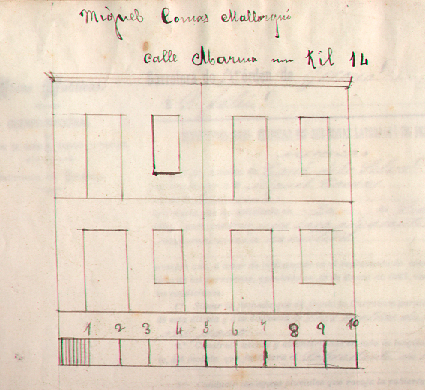 Miquel Comas Mallorquí
Calle Marina Kil 14
1 2 3 4 5 6 7 8 9 10